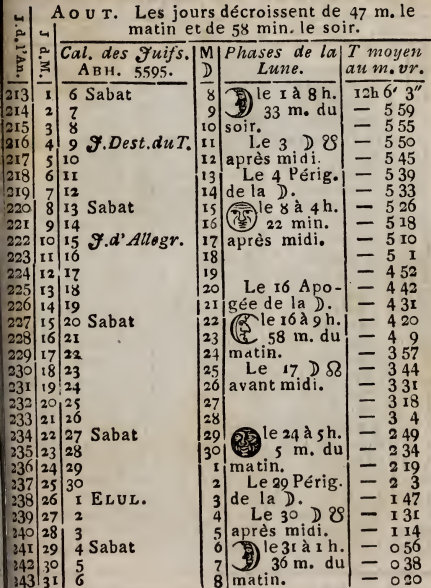 AOUT. Les jours décroissent de 47 m. le
matin et de 58 min. le soir.
J. d. l'An. J. d. M. Cal. des Juifs. ABH. 5595. M ☽ Phases de la Lune. T moyen au m. vr.
213 1 6 Sabat 8 le 1 à 8 h. 12h 6′ 3″
214 2 7 9 33 m. du — 5 59
215 3 8 10 soir. — 5 55
216 4 9 J. Dest. du T. 11 Le 3 ☽ ☋ — 5 50
217 5 10 12 après midi. — 5 45
218 6 11 13 Le 4 Périg. — 5 39
219 7 12 14 de la ☽. — 5 33
220 8 13 Sabat 15 le 8 à 4 h. — 5 26
221 9 14 16 22 min. — 5 18
222 10 15 J. d'Allegr. 17 après midi. — 5 10
223 11 16 18 — 5 1
224 12 17 19 — 4 52
225 13 18 20 Le 16 Apo- — 4 42
226 14 19 21 gée de la ☽. — 4 31
227 15 20 Sabat 22 le 16 à 9 h. — 4 20
228 16 21 23 58 m. du — 4 9
229 17 22 24 matin. — 3 57
230 18 23 25 Le 17 ☽ ☊ — 3 44
231 19 24 26 avant midi. — 3 31
232 20 25 27 — 3 18
233 21 26 28 — 3 4
234 22 27 Sabat 29 le 24 à 5 h. — 2 49
235 23 28 30 5 m. du — 2 34
236 24 29 1 matin. — 2 19
237 25 30 2 Le 29 Périg. — 2 3
238 26 1 ELUL. 3 de la ☽. — 1 47
239 27 2 4 Le 30 ☽ ☋ — 1 31
240 28 3 5 après midi. — 1 14
241 29 4 Sabat 6 le 31 à 1 h. — 0 56
242 30 5 7 36 m. du — 0 38
243 31 6 8 matin. — 0 20